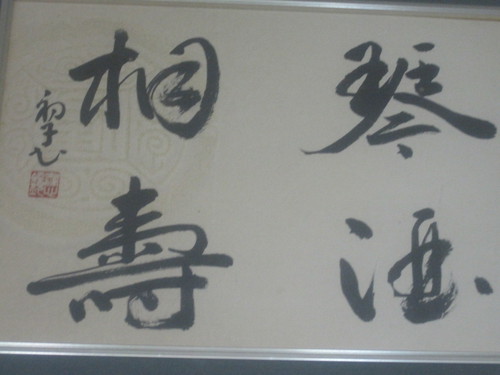 琴酒
相壽